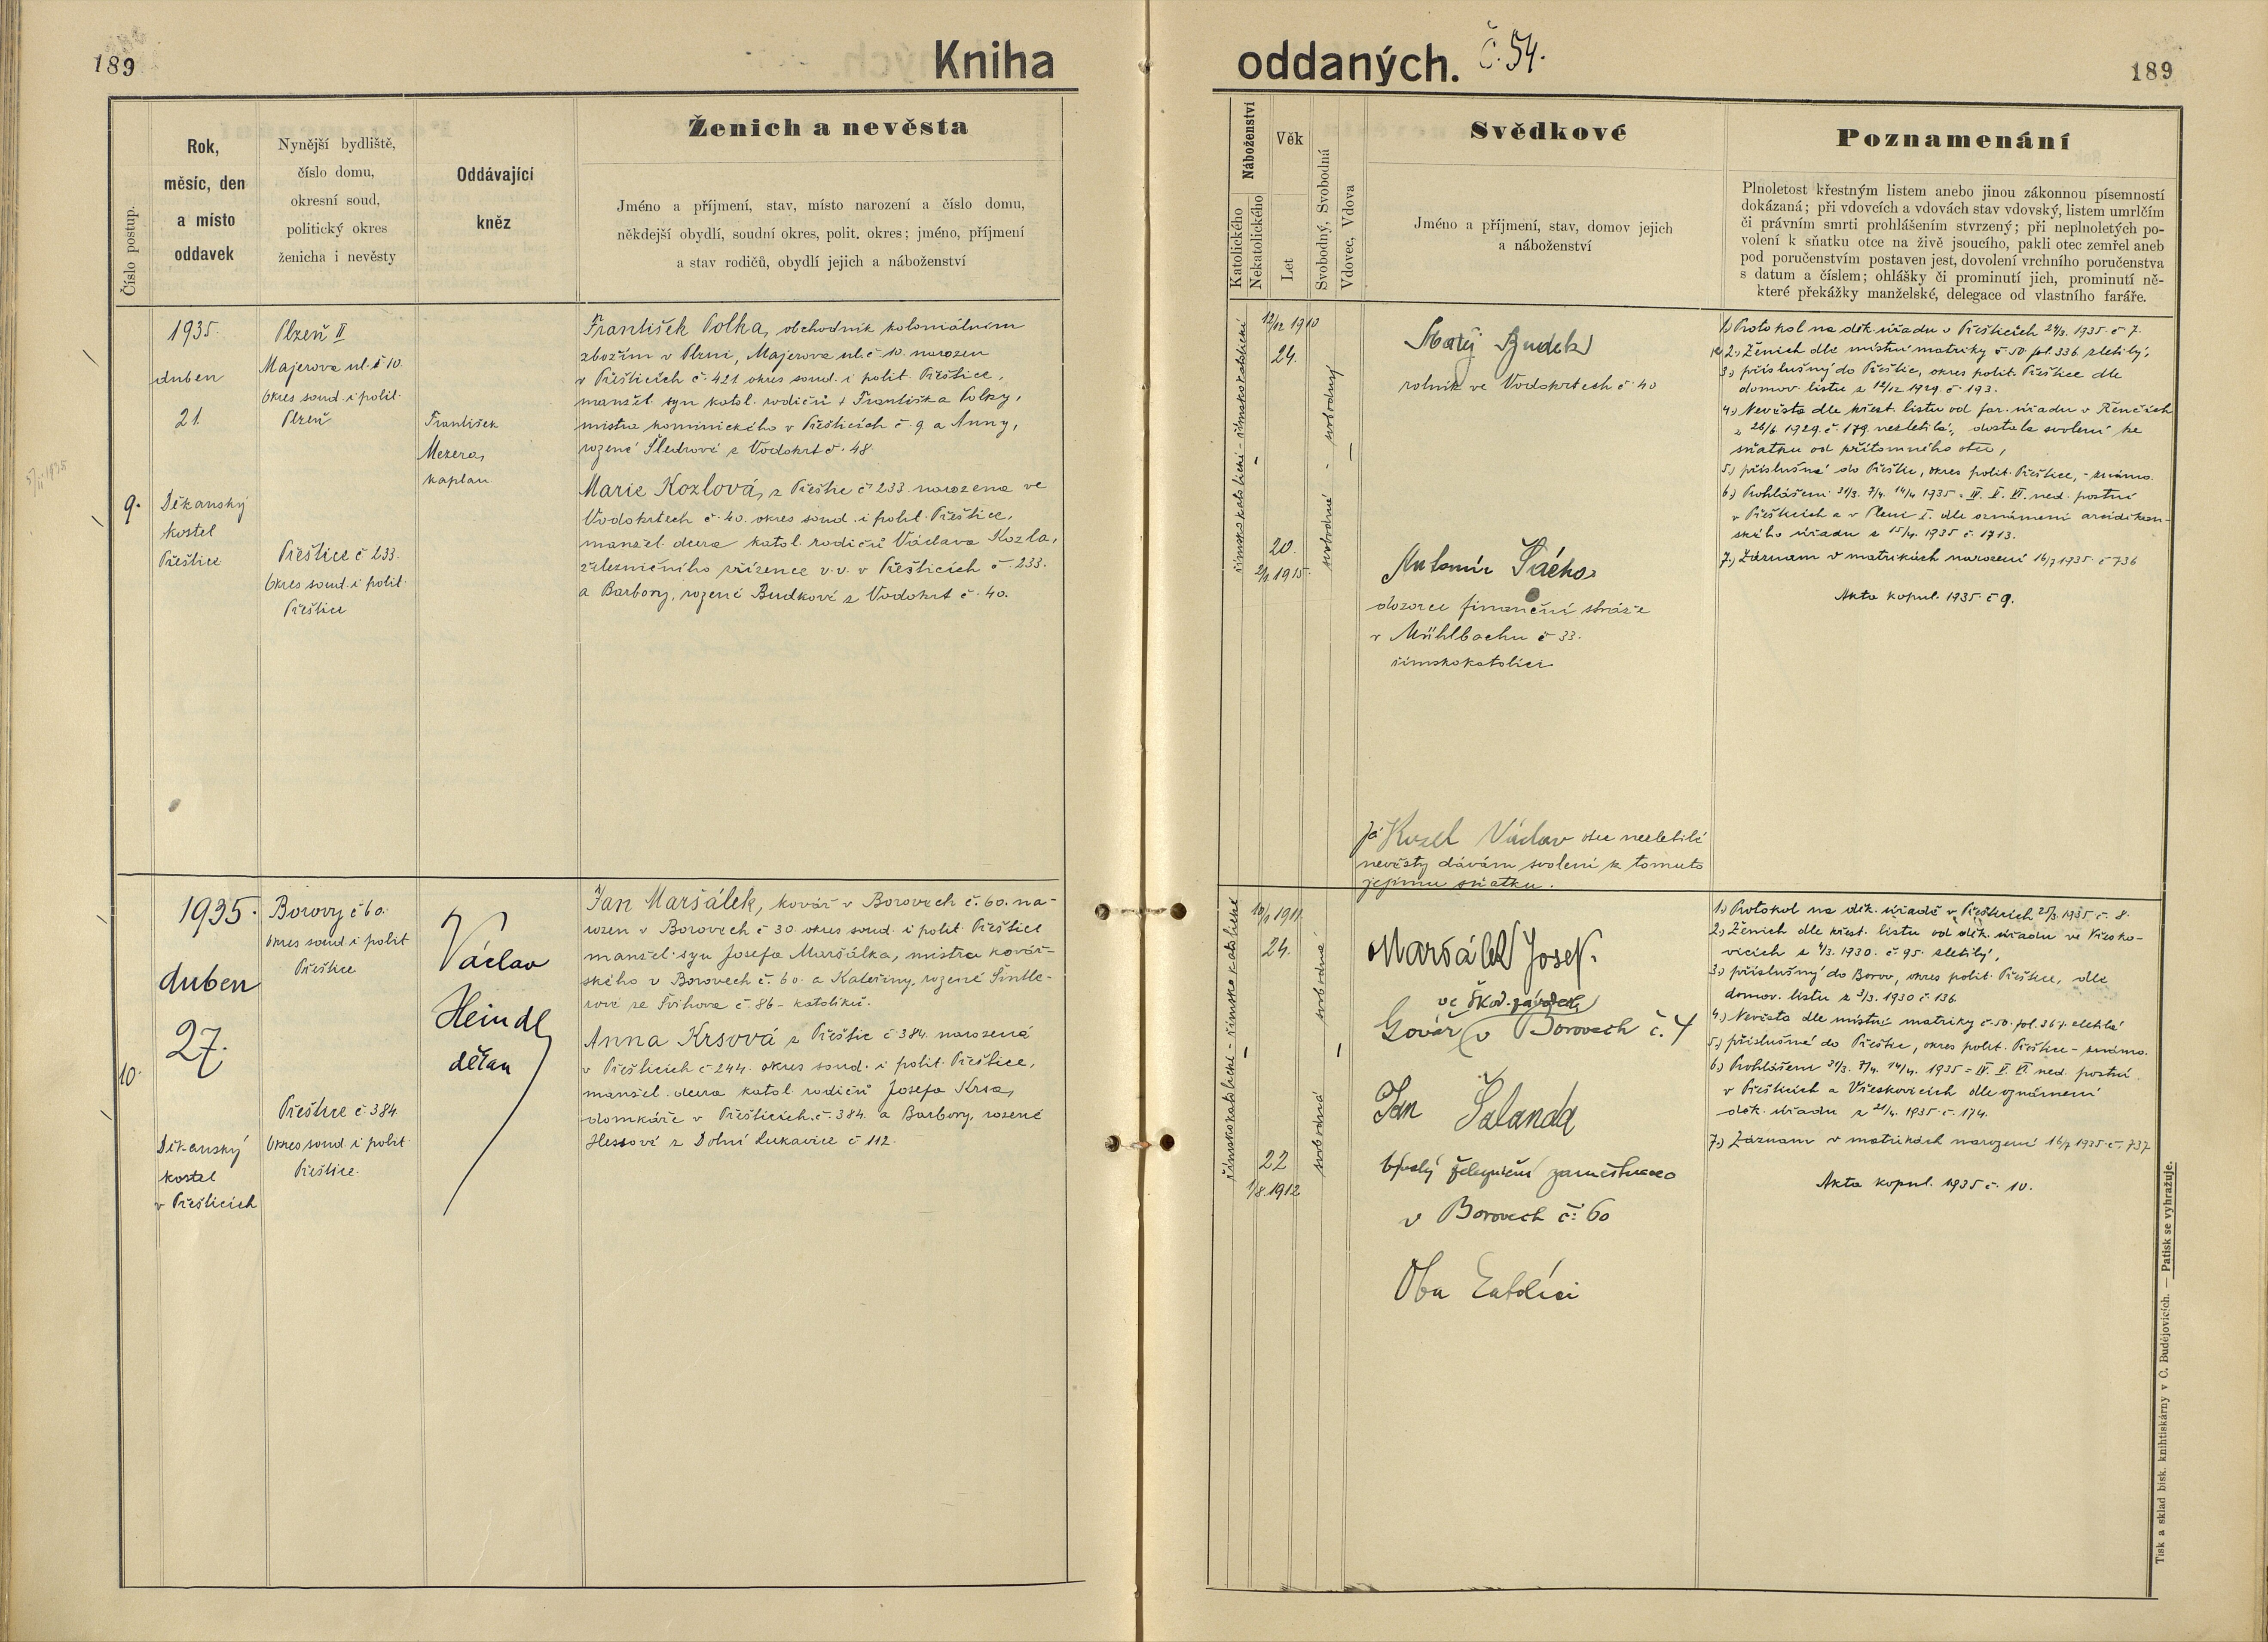 189
Kniha
oddaných.
č. 54.
189
Číslo postup.
Rok,
měsíc, den
a místo
oddavek
Nynější bydliště,
číslo domu,
okresní soud,
politický okres
ženicha i nevěsty
Oddávající
kněz
Ženich a nevěsta
Jméno a příjmení, stav, místo narození a číslo domu,
někdejší obydlí, soudní okres, polit. okres; jméno, příjmení
a stav rodičů, obydlí jejich a náboženství
Náboženství
Katolického
Nekatolického
Věk
Let
Svobodný, Svobodná
Vdovec, Vdova
Svědkové
Jméno a příjmení, stav, domov jejich
a náboženství
Poznamenání
Plnoletost křestným listem anebo jinou zákonnou písemností
dokázaná; při vdovcích a vdovách stav vdovský, listem umrlčím
či právním smrti prohlášením stvrzený; při neplnoletých po-
volení k sňatku otce na živě jsoucího, pakli otec zemřel aneb
pod poručenstvím postaven jest, dovolení vrchního poručenstva
s datum a číslem; ohlášky či prominutí jich, prominutí ně-
které překážky manželské, delegace od vlastního faráře.
9.
1935.
duben
21.
Děkanský
kostel
Přeštice
Plzeň II
Majerova ul. č 10.
Okres soud. i polit.
Plzeň
Přeštice č 233.
Okres soud. i polit.
Přeštice
František
Mezera,
kaplan
František Polka, obchodník koloniálním
zbožím v Plzni, Majerova ul. č. 10. narozen
v Přešticích č. 421 okres soud. i polit. Přeštice,
manžel. syn katol. rodičů Františka Polky,
mistra kominického v Přešticích č. 9 a Anny,
rozené Šledrové z Vodokrt č. 48.
Marie Kozlová, z Přeštic č 233. narozena ve
Vodokrtech č. 40. okres soud. i polit. Přeštice,
manžel. dcera katol. rodičů Václava Kozla,
železničního zřízence v. v. v Přešticích č 233.
a Barbory, rozené Budkové z Vodokrt č. 40.
římskokatolické - římskokatolické
12/12 1910
24.
20.
2/1 1915.
svobodné - svobodný
Matěj Budek
rolník ve Vodokrtech č. 40
Antonín Šácha
dozorce finanční stráže
v Mühlbachu č 33.
římskokatolíci
Já Kozel Václav otec nezletilé
nevěsty dávám svolení k tomuto
jejímu sňatku.
1.) Protokol na děk. úřadu v Přešticích 24/3. 1935. č 7.
2.) Ženich dle místní matriky č. 50. fol. 336 zletilý,
3.) příslušný do Přeštic, okres polit. Přeštice dle
domov. listu z 12/12 1929. č. 193.
4.) Nevěsta dle křest. listu od far. úřadu v Řenčích
z 26/6. 1929. č. 179. nezletilá, dostala svolení ke
sňatku od přítomného otce,
5.) příslušná do Přeštic, okres polit. Přeštice, - známo.
6.) Prohlášení 31/3. 7/4. 14/4 1935 = IV. V. VI. ned. postní
v Přešticích a v Plzni I. dle oznámení arciděkan-
ského úřadu z 15/4. 1935 č. 1713.
7.) Záznam v matrikách narození 16/7 1935. č 736
Akta kopul. 1935. č 9.
10.
1935.
duben
27.
Děkanský
kostel
v Přešticích
Borovy č 60.
Okres soud. i polit
Přeštice
Přeštice č. 384.
Okres soud. i polit.
Přeštice.
Václav
Heindl
děkan
Jan Maršálek, kovář v Borovech č. 60. na-
rozen v Borovech č 30. okres soud. i polit. Přeštice
manžel. syn Josefa Maršálka, mistra kovář-
ského v Borovech č. 60. a Kateřiny, rozené Šintle-
rové ze Švihova č. 86 - katolíků.
Anna Krsová z Přeštic č 384. narozená
v Přešticích č 244. okres soud. i polit. Přeštice,
manžel. dcera katol. rodičů Josefa Krsa,
domkáře v Přešticích č. 384. a Barbory, rozené
Hessové z Dolní Lukavice č 112.
římskokatolické - římskokatolické
10/1 1911.
24.
22
1/8. 1912
svobodná svobodná
Maršálek Josef.
ve Škod. závodech
Kovář v Borovech č. 4
Jan Šalanda
bývalý železniční zaměstnanec
v Borovech č: 60
Oba katolíci
1.) Protokol na děk. úřadě v Přešticích 25/3. 1935. č. 8.
2.) Ženich dle křest. listu od děk. úřadu ve Vřesko-
vicích z 4/3. 1930. č. 95. zletilý,
3.) příslušný do Borov, okres polit. Přeštice, dle
domov. listu z 3/3. 1930 č. 136
4.) Nevěsta dle místní matriky č. 50. fol. 367. zletilá
5.) příslušná do Přeštic, okres polit. Přeštice - známo.
6.) Prohlášení 31/3. 7/4. 14/4. 1935 = IV. V. VI ned. postní
v Přešticích a Vřeskovicích dle oznámení
děk. úřadu z 21/4. 1935. č. 174.
7.) Záznam v matrikách narození 16/7 1935. č. 737
Akta kopul. 1935 č. 10.
Tisk a sklad bisk. knihtiskárny v Č. Budějovicích. — Patisk se vyhražuje.